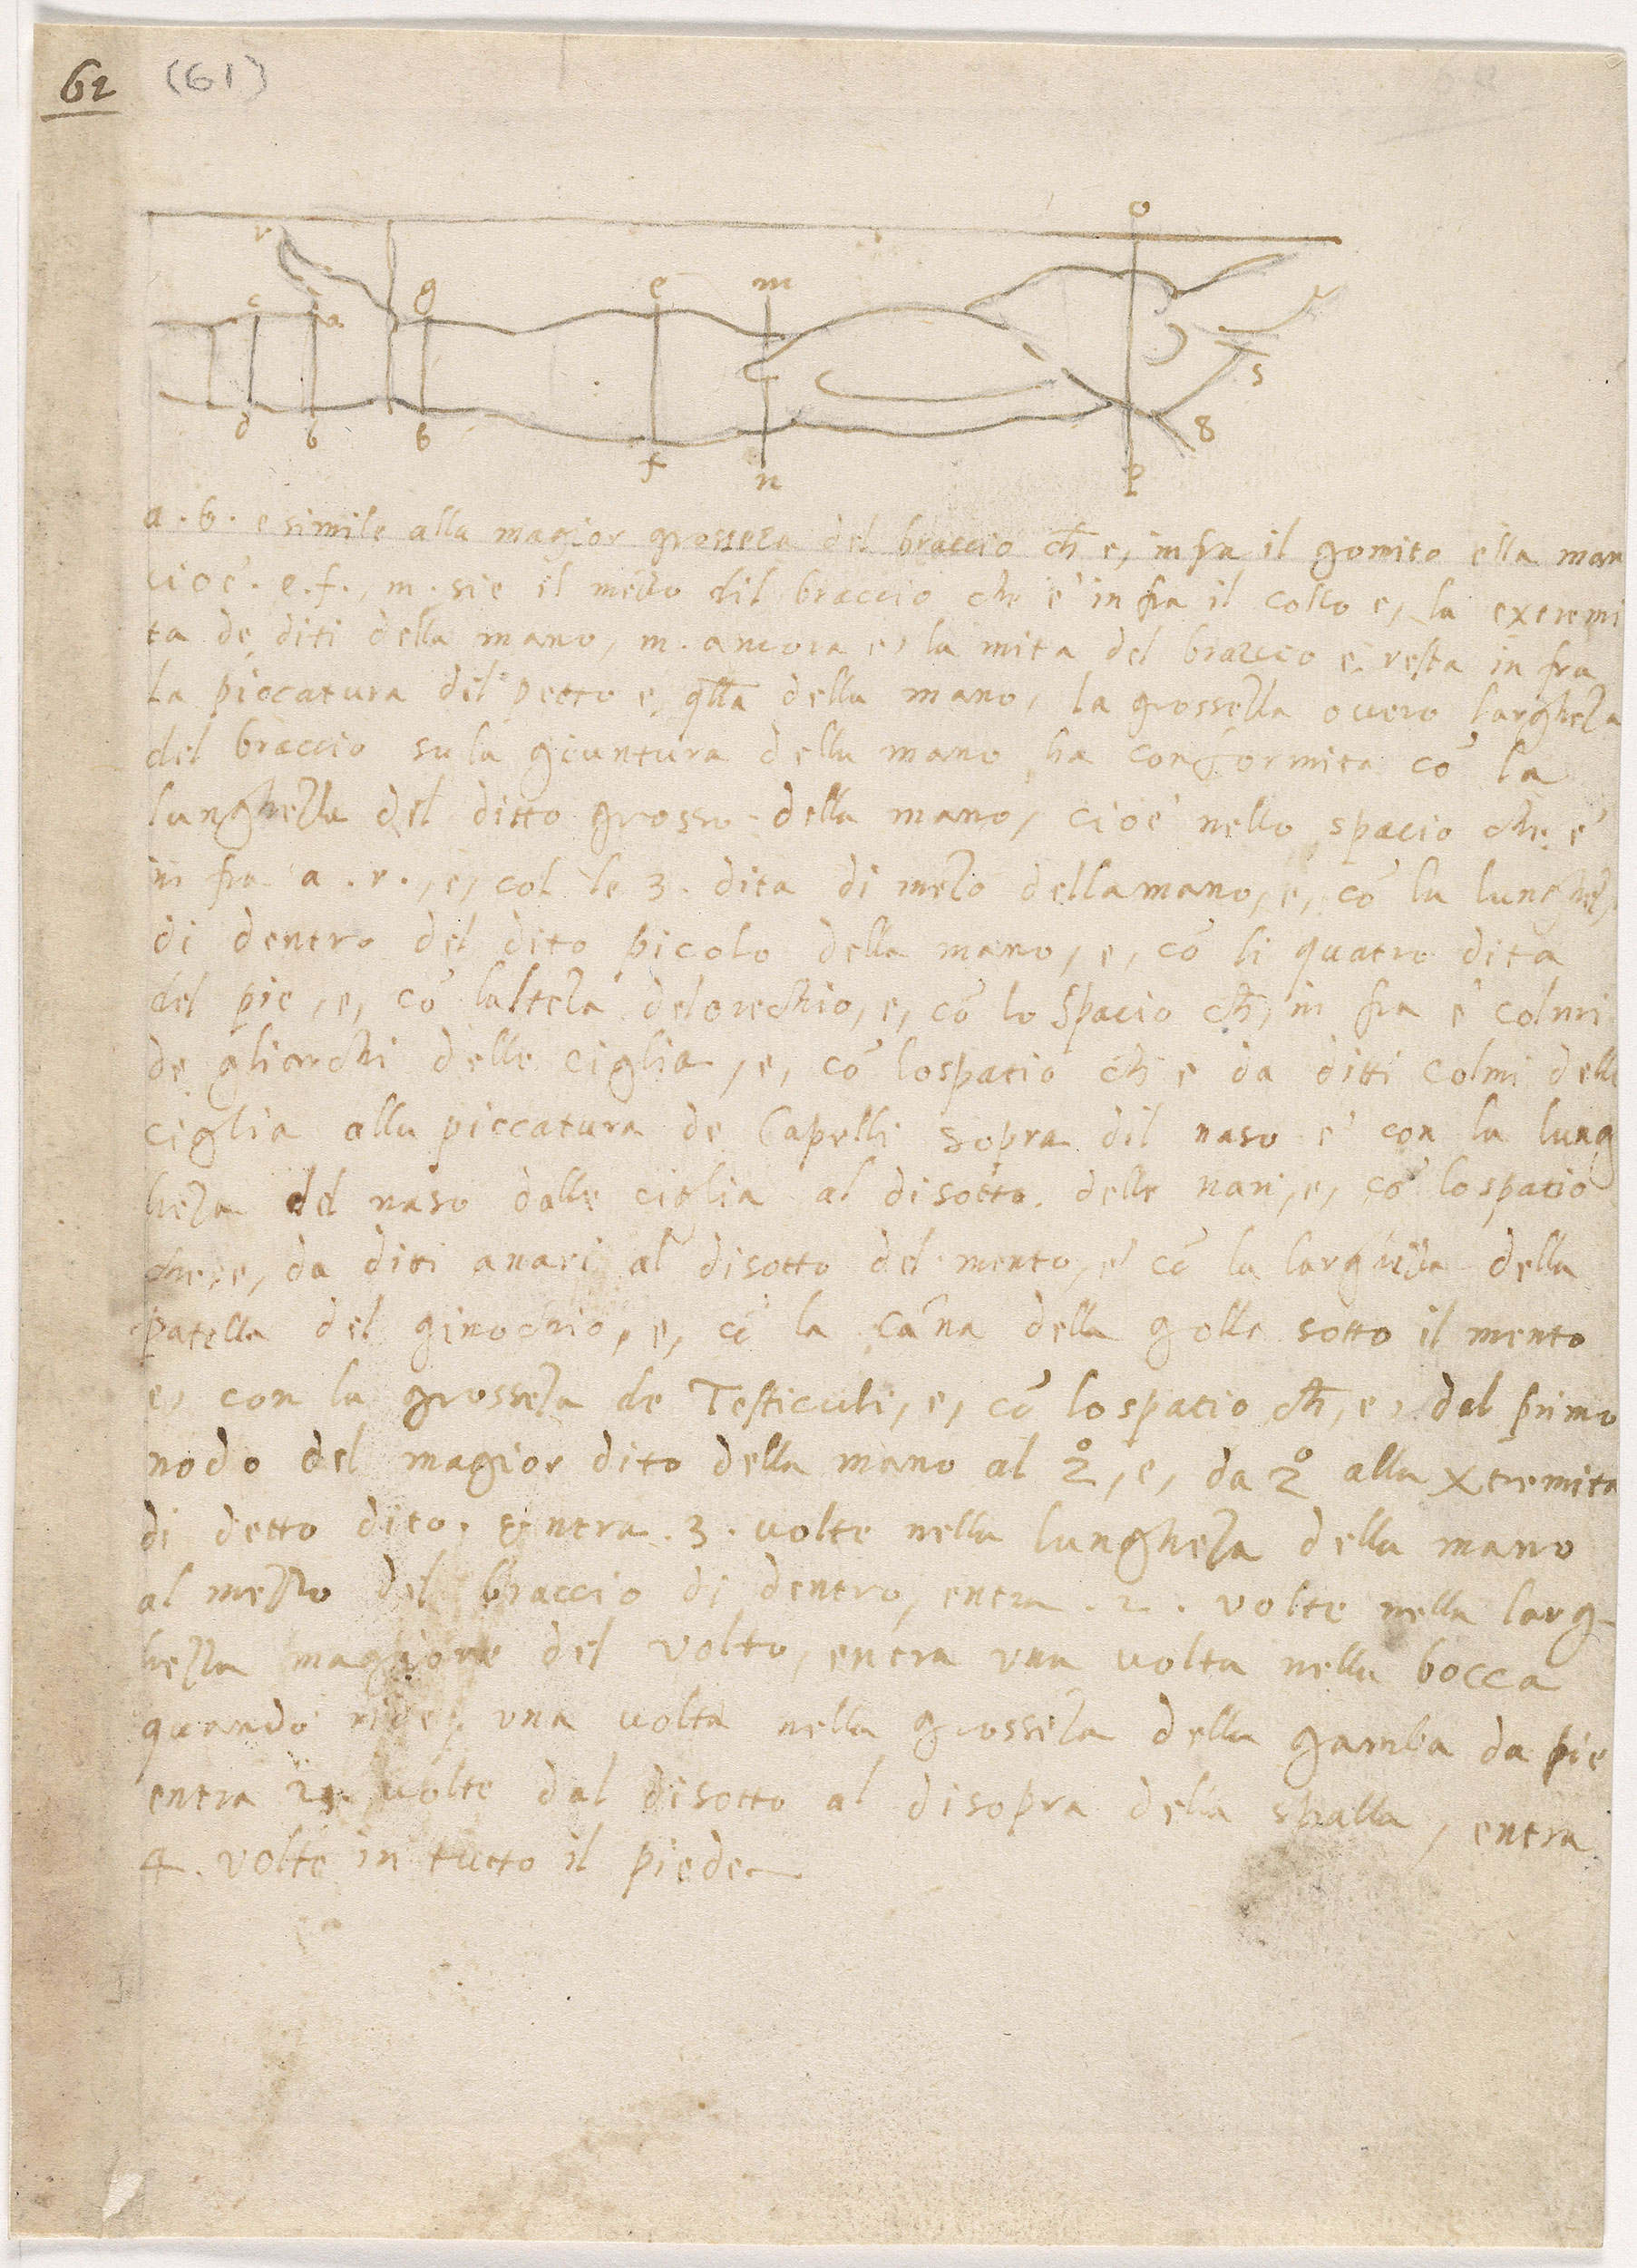 62 (61)
o
r
c a g e m
s
d b 6 f n p 8
a . b . e simile alla magior grosseza del braccio ch̄ e, infra il gomito ella man
cioè . e . f ., m . sie il mezzo dil braccio che è infra il collo e, la extremi
ta de diti della mano, m . ancora e, la mita del braccio e resta in fra
la piccatura dil petto e, qll̄a della mano, la grossezza overo largheza
del braccio su la giuntura della mano ha conformita cō la
lunghezza del ditto grosso della mano, cioè nello spacio che è
in fra a . r ., e, col le 3 . dita di mezo dellamano, e, cō la lunghez
di dentro del dito picolo della mano, e, cō li quatro dita
del pie, e, cō lalteza del orechio, e, cō lo spacio ch̄, in fra e colmi
de gliarchi delle ciglia, e, cō lospatio ch̄ e da ditti colmi delle
ciglia alla piccatura de Capelli sopra dil naso e con la lung
heza del naso dalle ciglia al disotto delle nari, e, cō lo spatio
che, e, da diti anari al disotto del mento, e cō la larghezza della
patella del ginochio, e, cō la cāna della golla sotto il mento
e, con la grosseza de Testiculi, e, cō lo spatio ch̄, e, dal primo
nodo del magior dito della mano al 2º, e, da 2º alla xtremita
di detto dito . entra . 3 . volte nella lungheza della mano
al mezzo del braccio di dentro, entra . 2 . volte nella larg-
hezza magiore del volto, entra una volta nella bocca
quando ride, una volta nella grosseza della gamba da pie
entra volte dal disotto al disopra della spalla, entra
4 . volte in tutto il piede